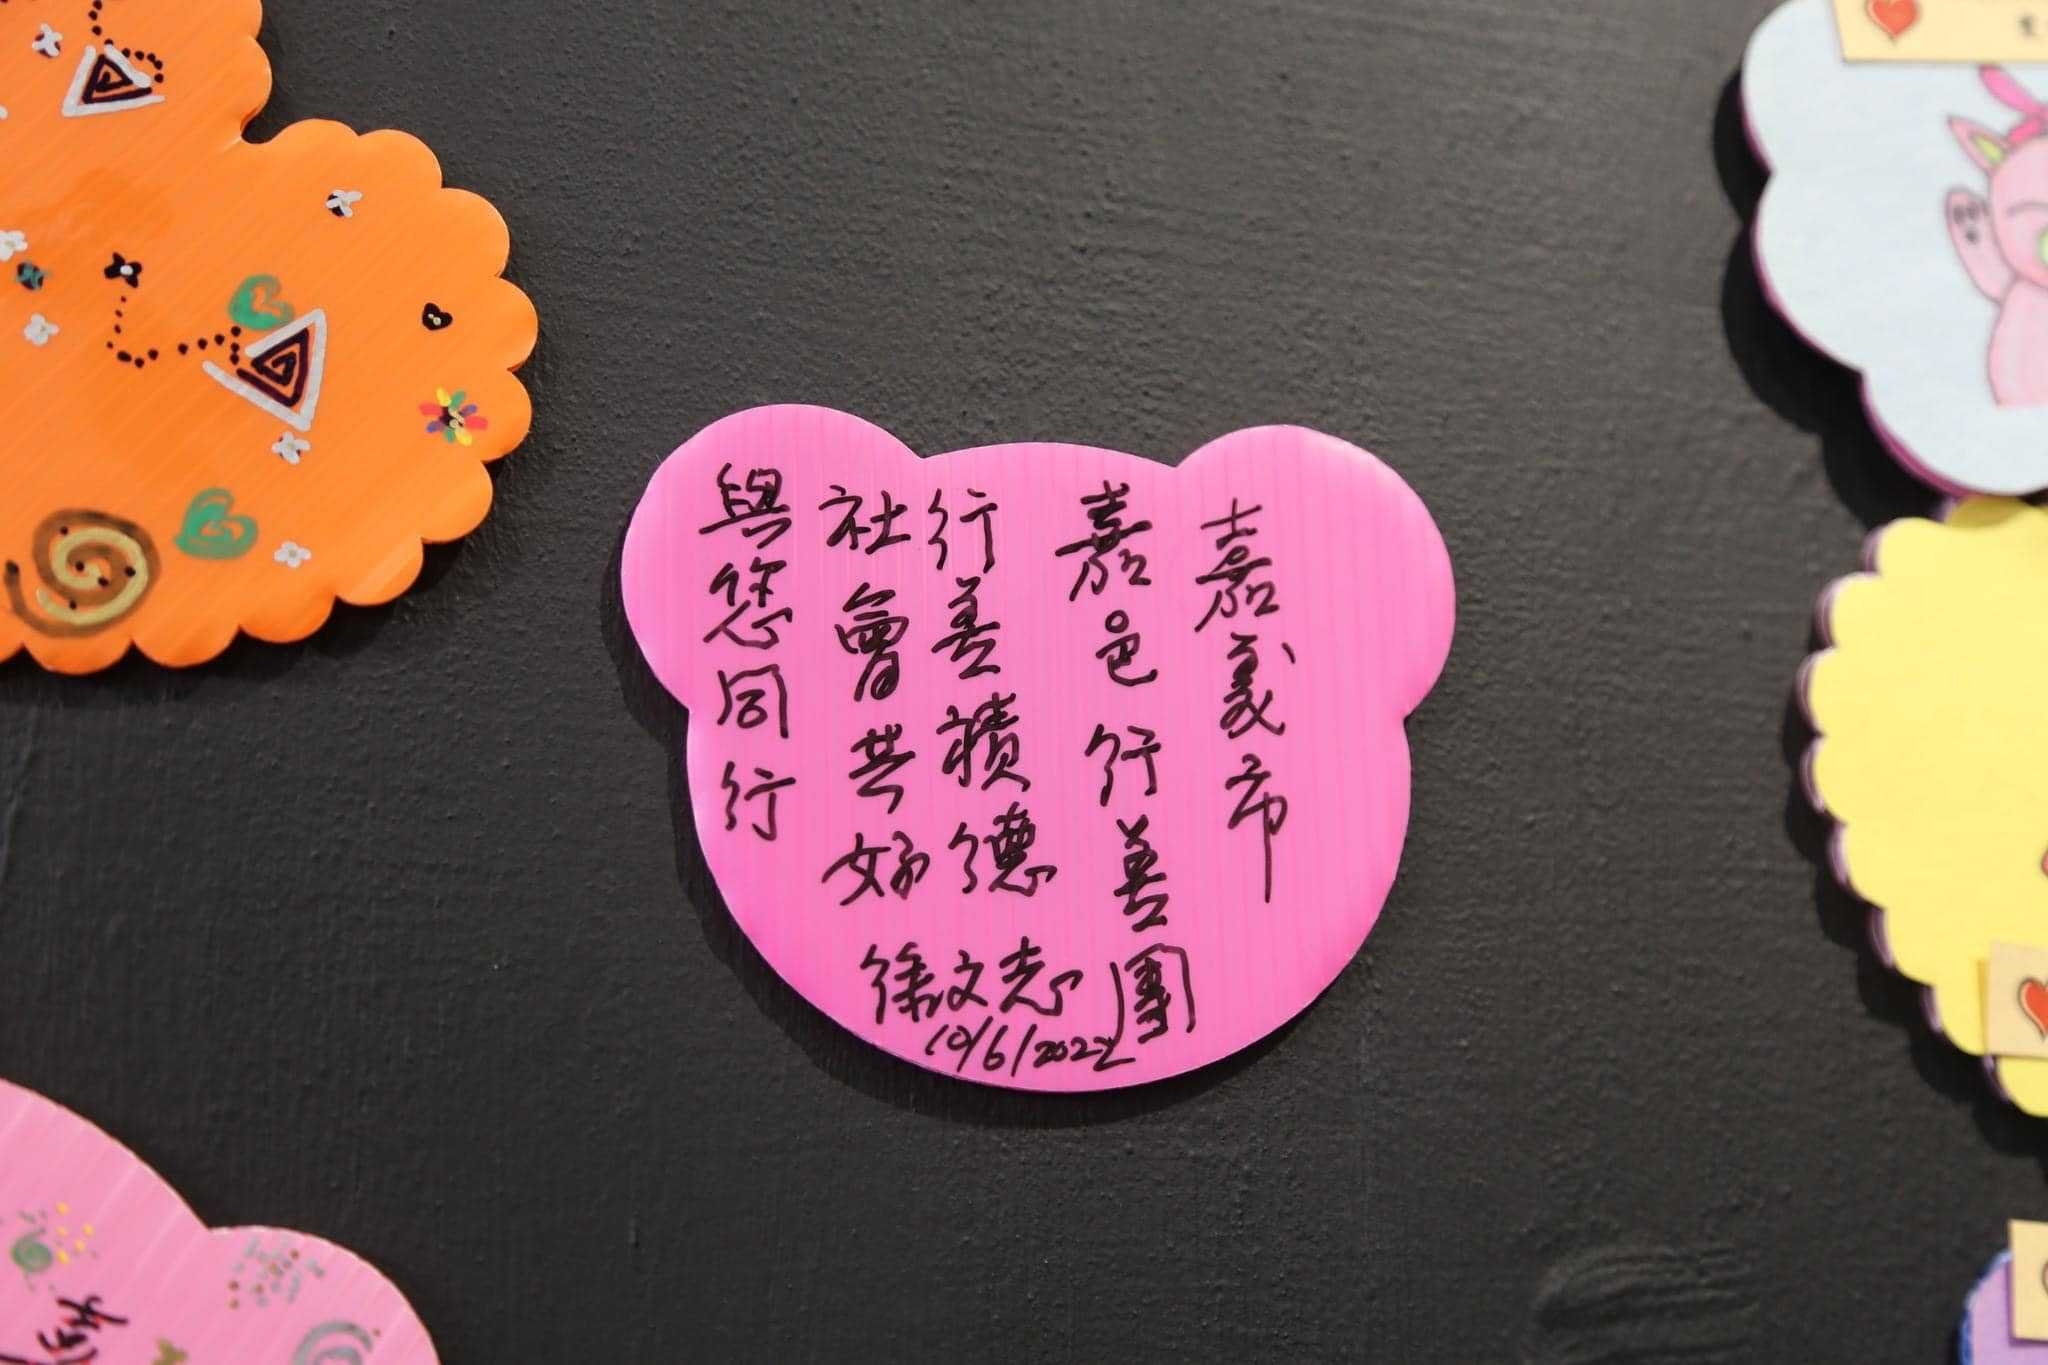 嘉義市
嘉邑行善團
行善積德
社會共好
與您同行
徐文志
10/6/2022